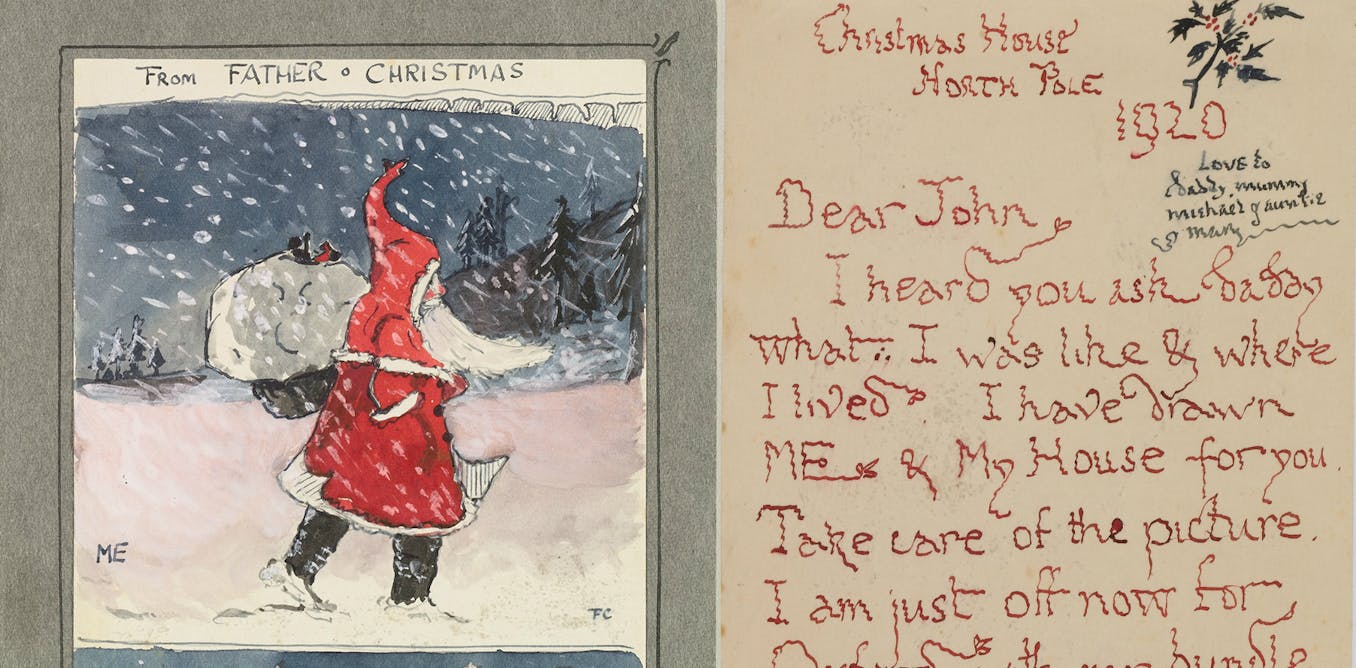 From FATHER CHRISTMAS
ME
FC
Christmas House
NORTH POLE
1920
Love to
daddy, mummy
michael & auntie
mary
Dear John
I heard you ask daddy
what I was like & where
I lived. I have drawn
ME & My House for you.
Take care of the picture.
I am just off now for
Oxford with my bundle